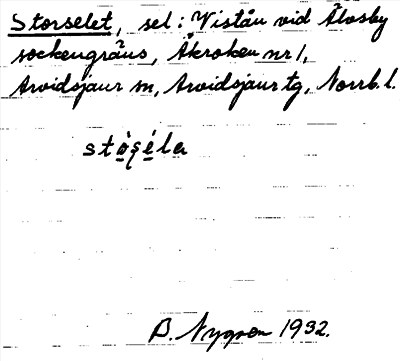 Storselet, sel: Wistån vid Älvsby
sockengräns, Åkroken nr 1,
Arvidsjaur sn, Arvidsjaur tg, Norrb. l.
stòṣéla
B. Nygren 1932.